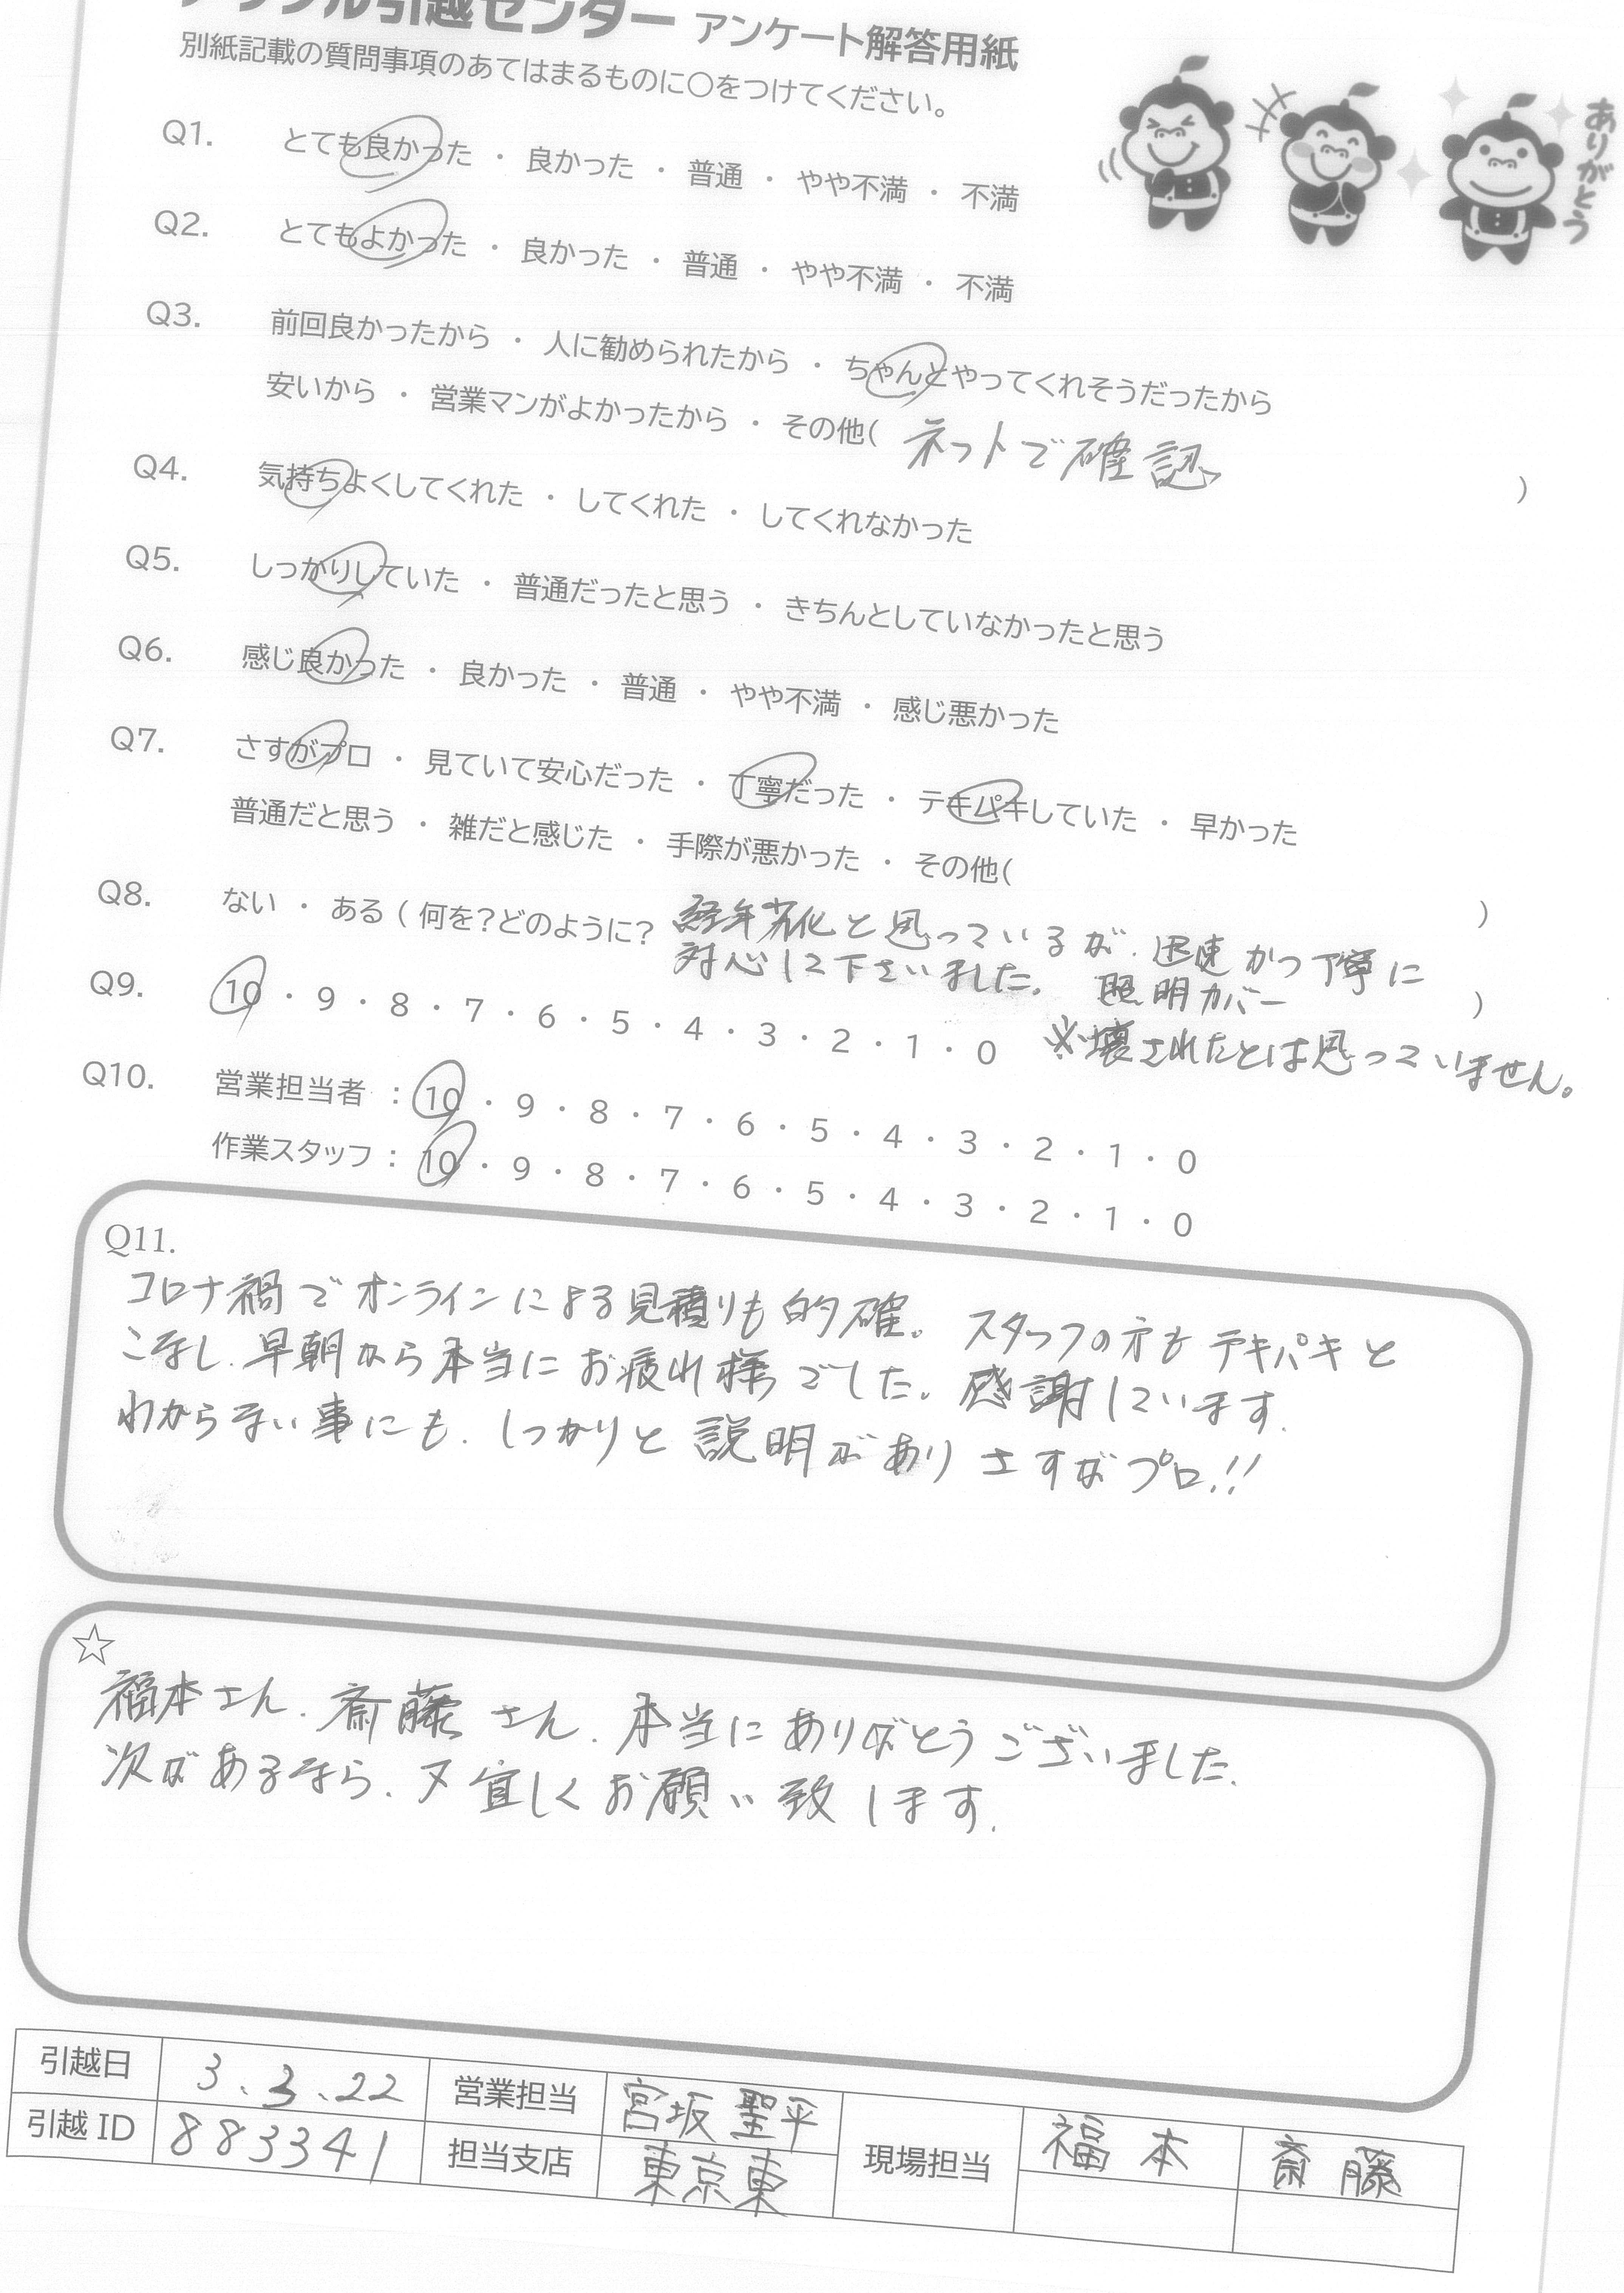 アップル引越センター アンケート解答用紙
別紙記載の質問事項のあてはまるものに○をつけてください。
ありがとう
Q1. とても良かった ・ 良かった ・ 普通 ・ やや不満 ・ 不満
Q2. とてもよかった ・ 良かった ・ 普通 ・ やや不満 ・ 不満
Q3. 前回良かったから ・ 人に勧められたから ・ ちゃんとやってくれそうだったから
安いから ・ 営業マンがよかったから ・ その他( ネットで確認 )
Q4. 気持ちよくしてくれた ・ してくれた ・ してくれなかった
Q5. しっかりしていた ・ 普通だったと思う ・ きちんとしていなかったと思う
Q6. 感じ良かった ・ 良かった ・ 普通 ・ やや不満 ・ 感じ悪かった
Q7. さすがプロ ・ 見ていて安心だった ・ 丁寧だった ・ テキパキしていた ・ 早かった
普通だと思う ・ 雑だと感じた ・ 手際が悪かった ・ その他( )
Q8. ない ・ ある ( 何を?どのように? 経年劣化と思っているが、迅速かつ丁寧に
対応して下さいました。 照明カバー )
Q9. 10 ・ 9 ・ 8 ・ 7 ・ 6 ・ 5 ・ 4 ・ 3 ・ 2 ・ 1 ・ 0 ※壊されたとは思っていません。
Q10. 営業担当者 : 10 ・ 9 ・ 8 ・ 7 ・ 6 ・ 5 ・ 4 ・ 3 ・ 2 ・ 1 ・ 0
作業スタッフ : 10 ・ 9 ・ 8 ・ 7 ・ 6 ・ 5 ・ 4 ・ 3 ・ 2 ・ 1 ・ 0
Q11.
コロナ禍でオンラインによる見積りも的確。 スタッフの方もテキパキと
こなし、早朝から本当にお疲れ様でした。感謝しています。
わからない事にも、しっかりと説明がありさすがプロ!!
☆
福本さん、斎藤さん、本当にありがとうございました。
次があるなら、又宜しくお願い致します。
引越日 3、3、22 営業担当 宮坂 聖平 現場担当 福本 斎藤
引越 ID 883341 担当支店 東京東